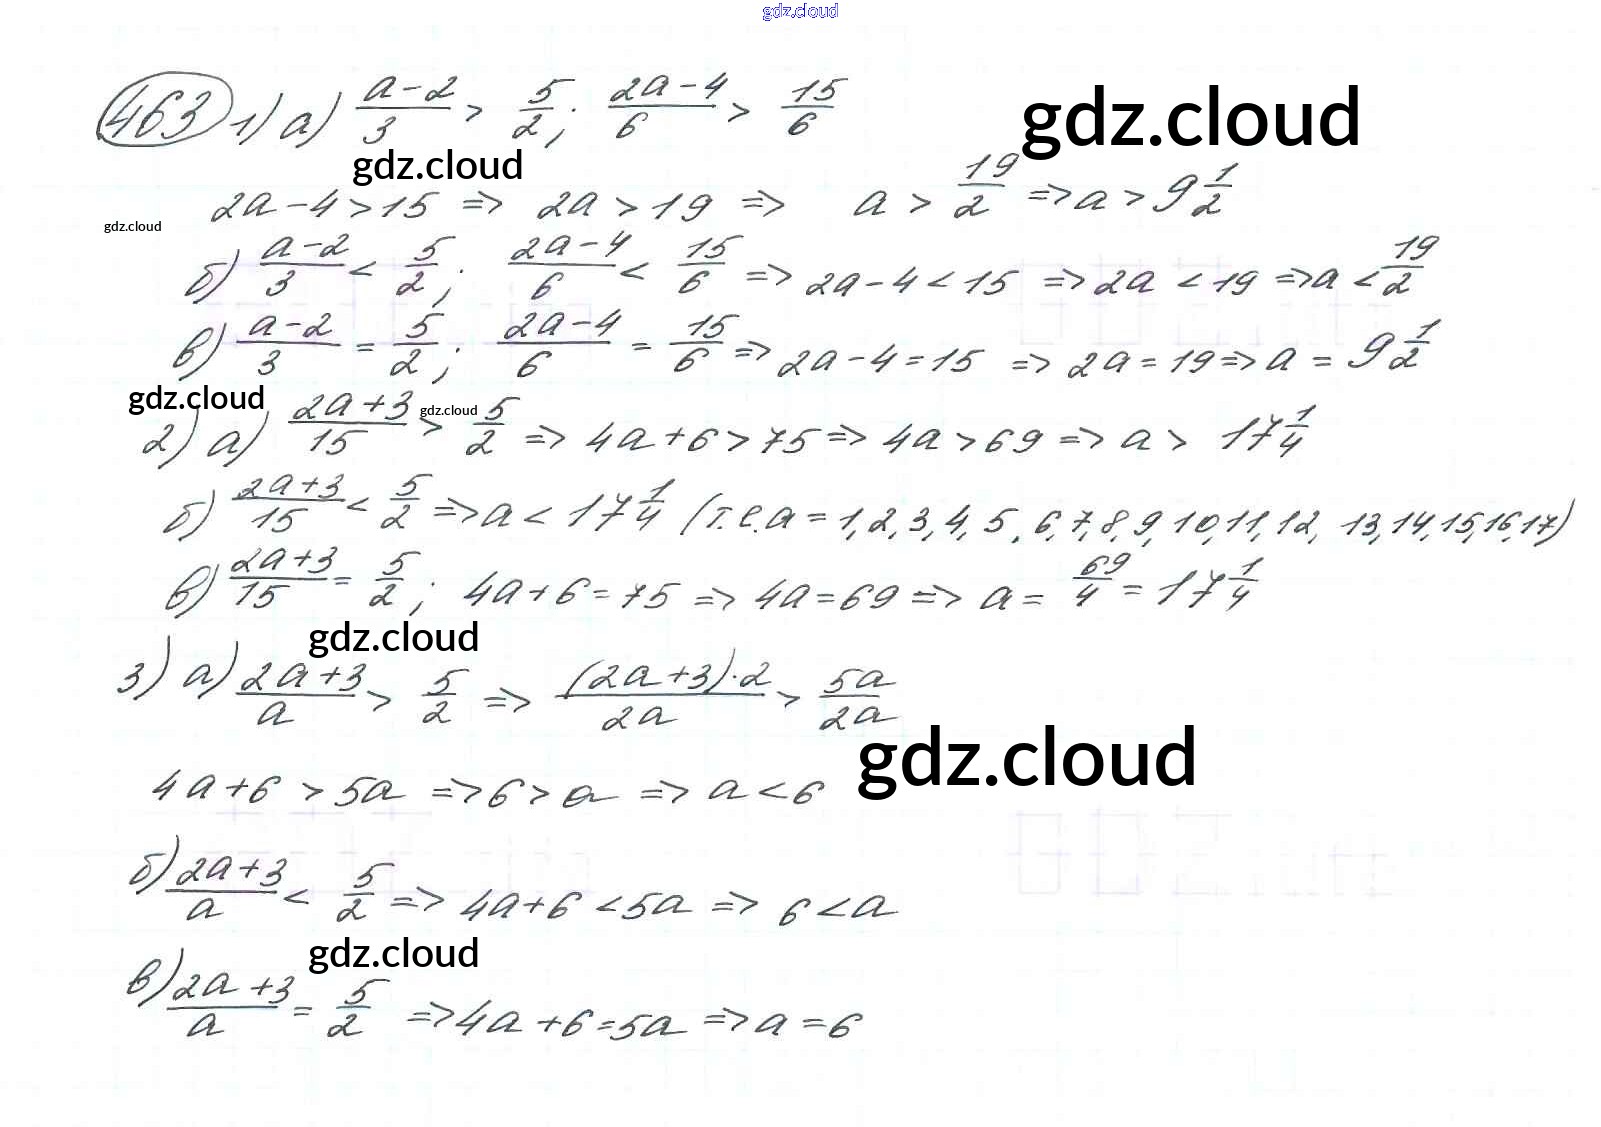 gdz.cloud
463 1) а) (a-2)/3 > 5/2; (2a-4)/6 > 15/6
gdz.cloud
gdz.cloud
2a-4>15 => 2a>19 => a > 19/2 => a > 9 1/2
gdz.cloud
б) (a-2)/3 < 5/2; (2a-4)/6 < 15/6 => 2a-4<15 => 2a<19 => a<19/2
в) (a-2)/3 = 5/2; (2a-4)/6 = 15/6 => 2a-4=15 => 2a=19 => a = 9 1/2
gdz.cloud
gdz.cloud
2) а) (2a+3)/15 > 5/2 => 4a+6>75 => 4a>69 => a > 17 1/4
б) (2a+3)/15 < 5/2 => a < 17 1/4 (т.е. a = 1, 2, 3, 4, 5, 6, 7, 8, 9, 10, 11, 12, 13, 14, 15, 16, 17)
в) (2a+3)/15 = 5/2; 4a+6=75 => 4a=69 => a = 69/4 = 17 1/4
gdz.cloud
3) а) (2a+3)/a > 5/2 => ((2a+3)·2)/2a > 5a/2a
gdz.cloud
4a+6 > 5a => 6 > a => a < 6
б) (2a+3)/a < 5/2 => 4a+6 < 5a => 6 < a
gdz.cloud
в) (2a+3)/a = 5/2 => 4a+6=5a => a = 6